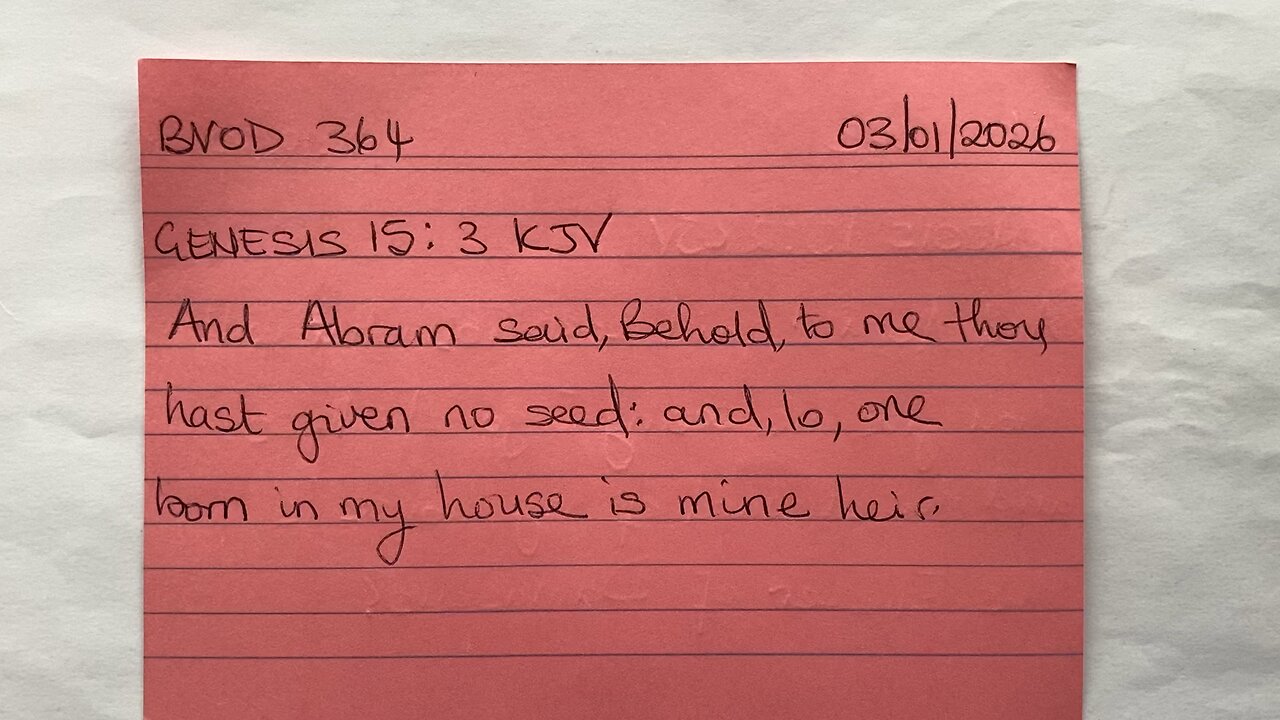 BVOD 364 03/01/2026
GENESIS 15:3 KJV
And Abram said, Behold, to me thou
hast given no seed: and, lo, one
born in my house is mine heir.